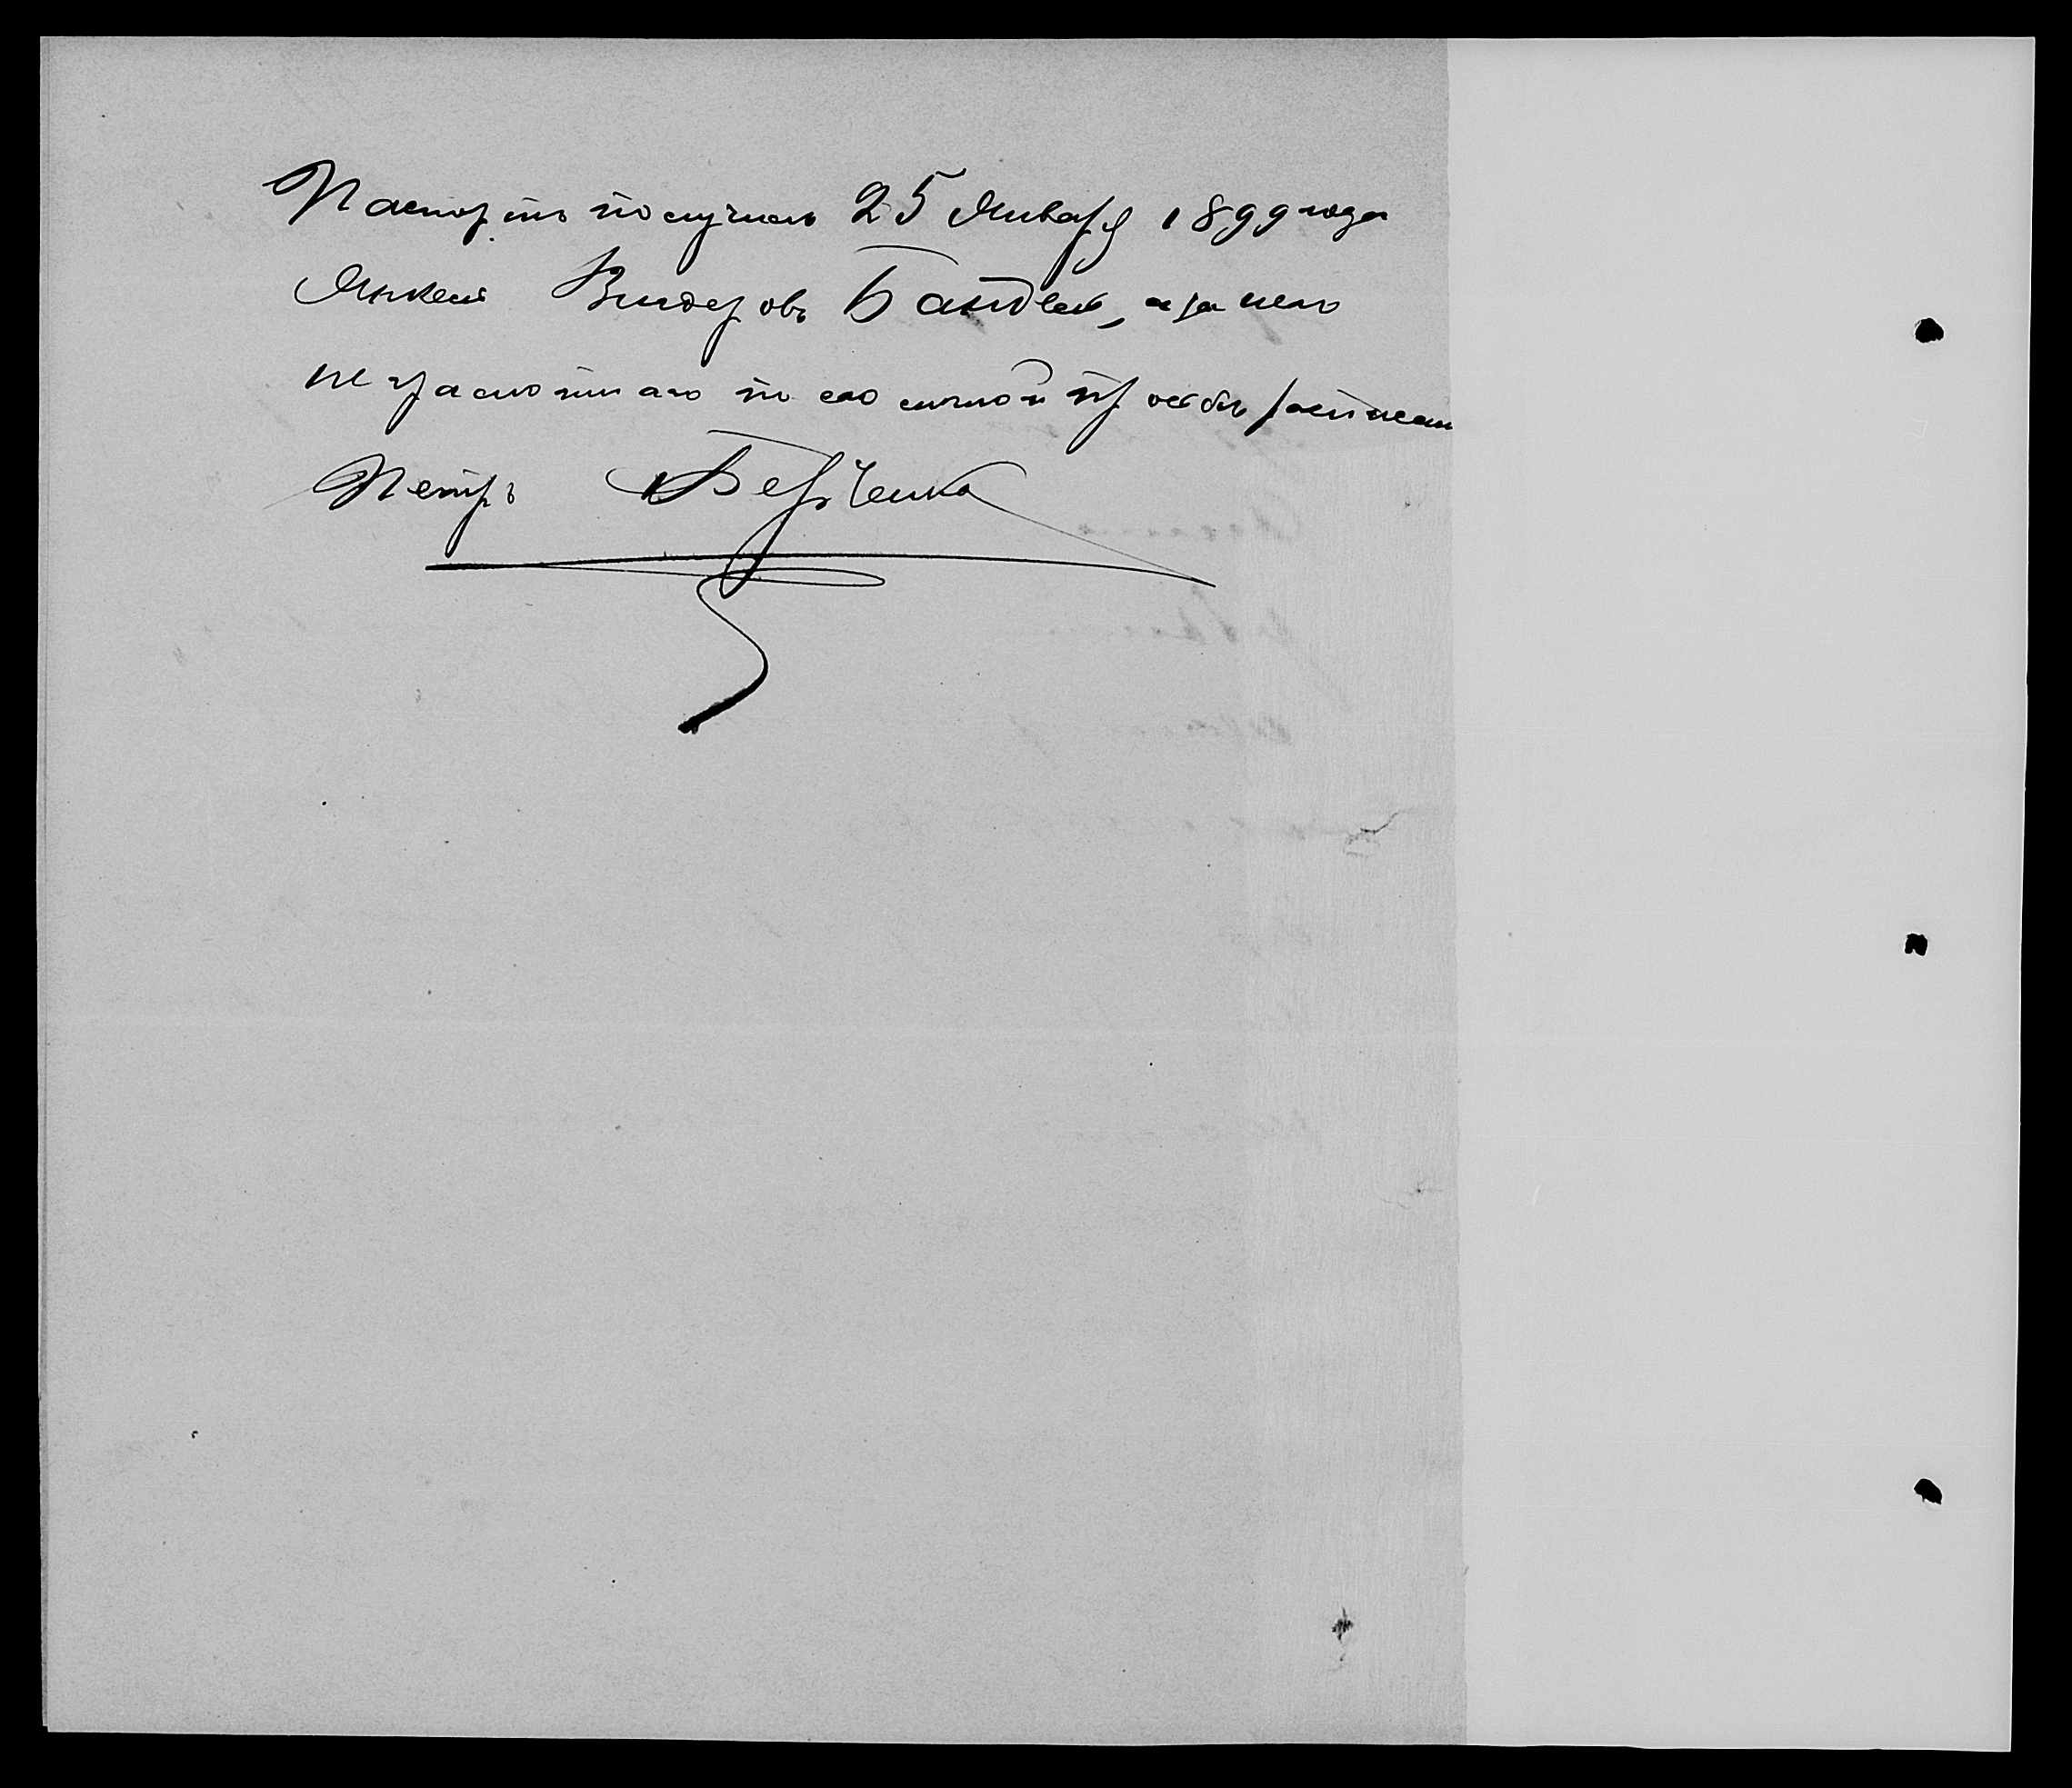 Паспортъ получилъ 25 Января 1899 года
Янкель Видеровъ Бандель, а за него
неграмотнаго по его личной просьбѣ росписался
Петръ Берченко